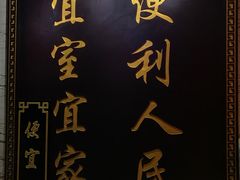 便利人民
宜室宜家
便宜